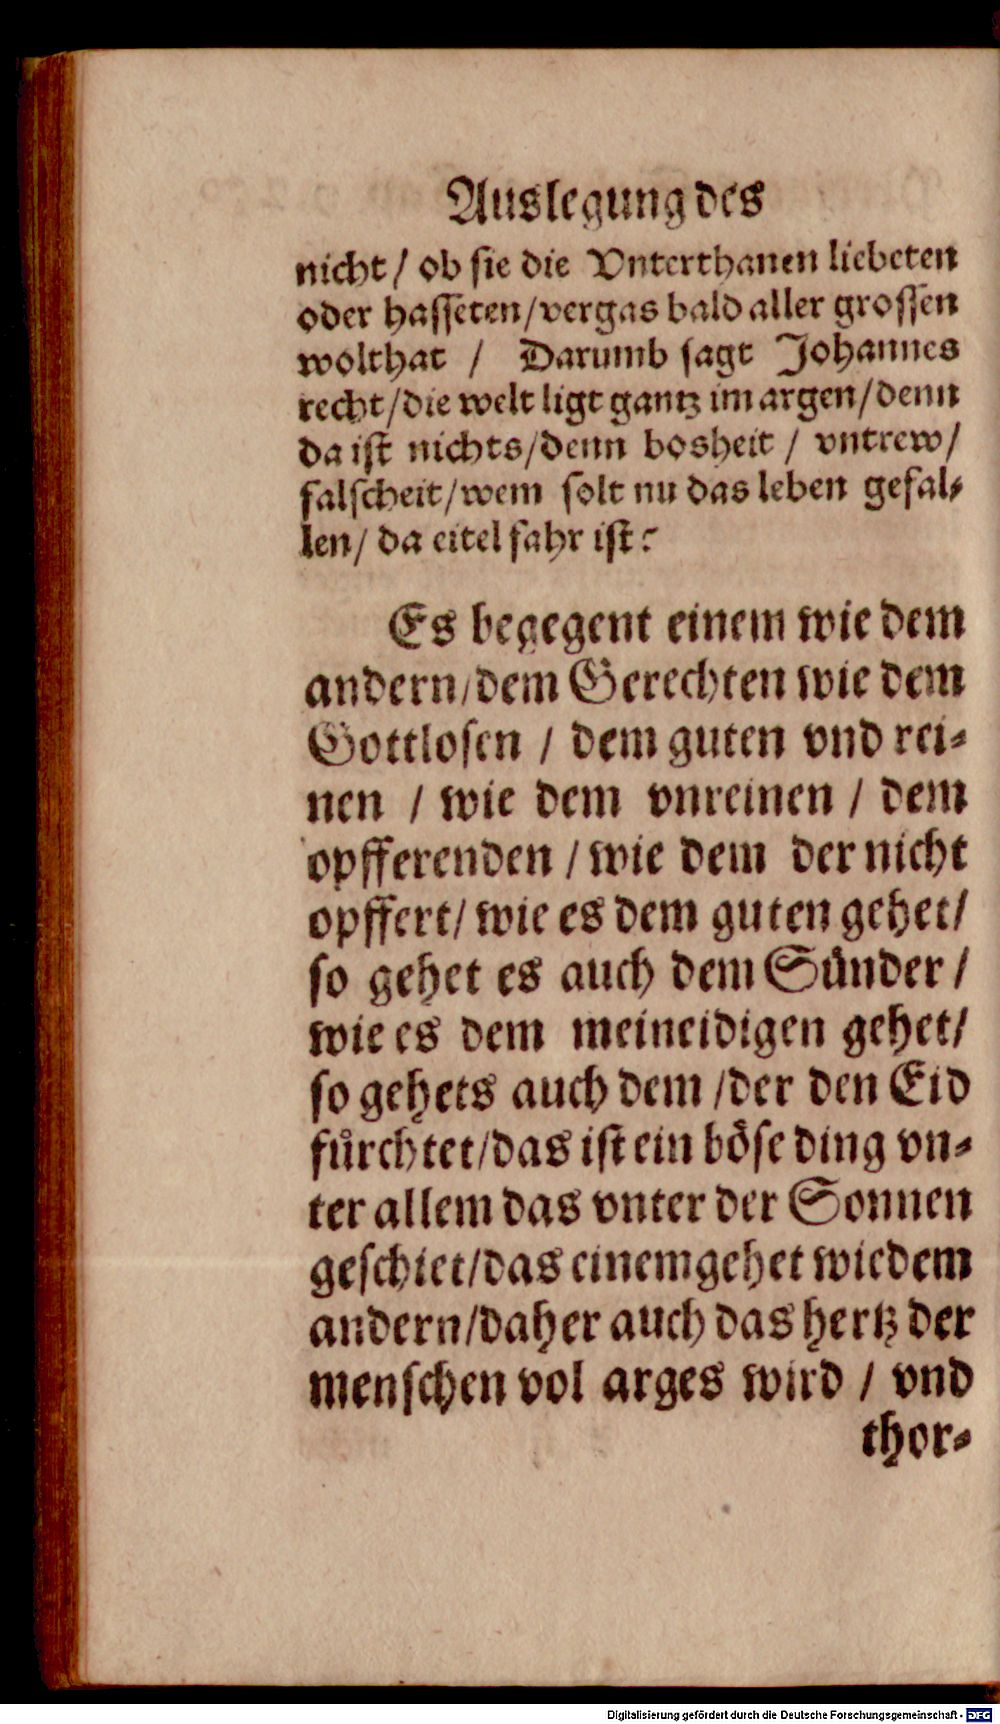 Auslegung des
nicht / ob sie die Vnterthanen liebeten
oder hasseten / vergas bald aller grossen
wolthat / Darumb sagt Johannes
recht / die welt ligt gantz im argen / denn
da ist nichts / denn bosheit / vntrew /
falscheit / wem solt nu das leben gefal-
len / da eitel fahr ist?
Es begegent einem wie dem
andern / dem Gerechten wie dem
Gottlosen / dem guten vnd rei-
nen / wie dem vnreinen / dem
opfferenden / wie dem der nicht
opffert / wie es dem guten gehet /
so gehet es auch dem Sünder /
wie es dem meineidigen gehet /
so gehets auch dem / der den Eid
fürchtet / das ist ein böse ding vn-
ter allem das vnter der Sonnen
geschiet / das einem gehet wie dem
andern / daher auch das hertz der
menschen vol arges wird / vnd
thor-
Digitalisierung gefördert durch die Deutsche Forschungsgemeinschaft - DFG